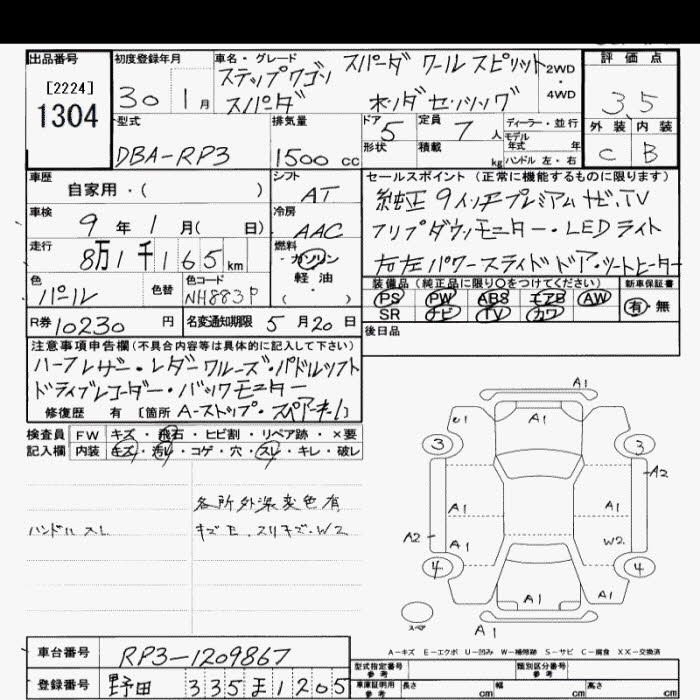 出品番号
[2224]
1304
初度登録年月
30 1月
車名・グレード
ステップワゴン スパーダ クールスピリット
スパーダ ホンダセンシング
2WD
・
4WD
評価点
3.5
外装 内装
C B
型式
DBA-RP3
排気量
1500 cc
ドア 5
形状
定員 7 人
積載 kg
ディーラー・並行
モデル年式 年
ハンドル 左・右
車歴
自家用・( )
シフト
AT
車検
9年1月( 日)
冷房
AAC
走行
8万1千165km
燃料
ガソリン
・
軽油
( )
色
パール
色替
色コード
NH883P
R券 10230 円
名変通知期限 5月20日
セールスポイント (正常に機能するものに限ります)
純正9インチプレミアムナビ.TV
フリップダウンモニター・LEDライト
右左パワースライドドア・シートヒーター
装備品 (純正品に限り○をつけてください)
PS PW ABS エアB AW
SR ナビ TV カワ
新車保証書
有・無
後日品
注意事項申告欄 (不具合内容等は具体的に記入して下さい)
ハーフレザー・レダークルーズ・パドルシフト
ドライブレコーダー・バックモニター
修復歴 有 [箇所 A-ストップ・スペアキー1]
検査員記入欄
FW キズ・飛石・ヒビ割・リペア跡・×要
内装 キズ・汚れ・コゲ・穴・スレ・キレ・破レ
各所外装変色有
ハンドルスレ
キズE.スリキズ.W2
A1
A1
e1
3
3
A2
A1
A1
A2
A1
W2
4
4
A1
A1
スペア
A1
A-キズ E-エクボ U-凹み W-補修跡 S-サビ C-腐食 XX-交換済
車台番号 RP3-1209867
登録番号 野田 335 ま 1205
型式指定番号
参考
類別区分番号
参考
車庫証明用
参考
長さ cm
幅 cm
高さ cm